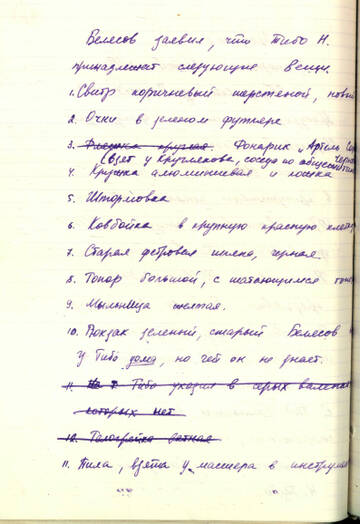 Белесов заявил, что Тибо Н.
принадлежат следующие вещи.
1. Свитр коричневый шерстеной, новый
2. Очки в зеленом футляре
3. Фляжка круглая. Фонарик "Артель
(взят у Круглекова, соседа по общежитию
4. Кружка алюминиевая и ложка
5. Штормовка
6. Ковбойка в крупную красную клетку
7. Старая фетровая шляпа, черная.
8. Топор большой, с шатающимся
9. Мыльница желтая.
10. Рюкзак зеленый, старый Белесов
у Тибо дома, но чей он не знает.
11. Тибо уходил в серых
которых нет
12. Телогрейка ватная
11. Пила, взята у мастера в